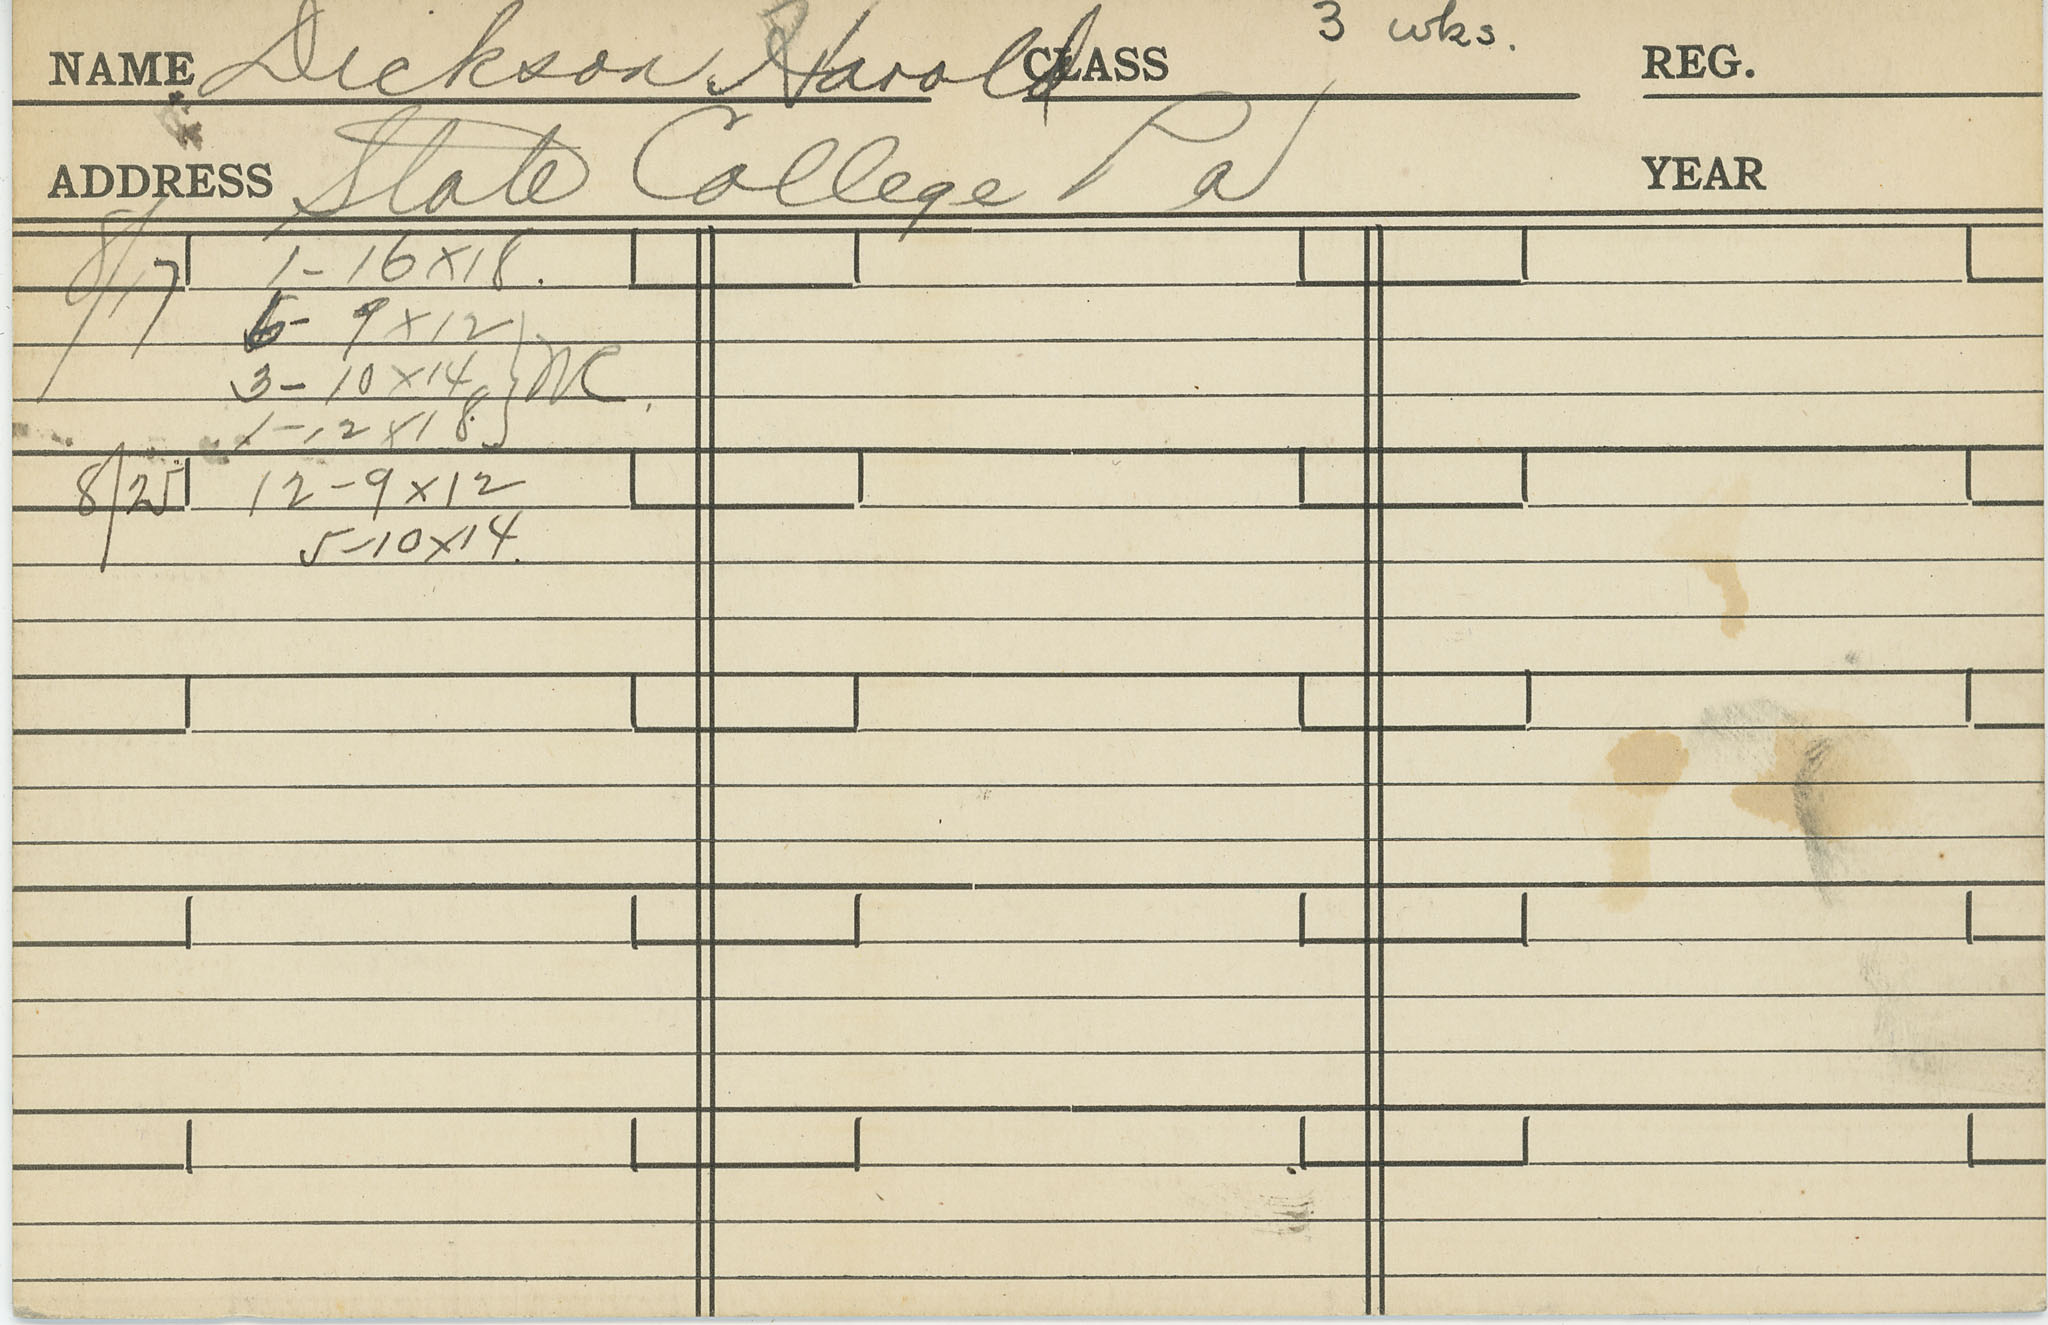 NAME Dickson, Harold CLASS 3 wks. REG.
ADDRESS State College Pa YEAR
8/17 1 - 16 x 18.
6 - 9 x 12
3 - 10 x 14
1 - 12 x 18
8/25 12 - 9 x 12
5 - 10 x 14.